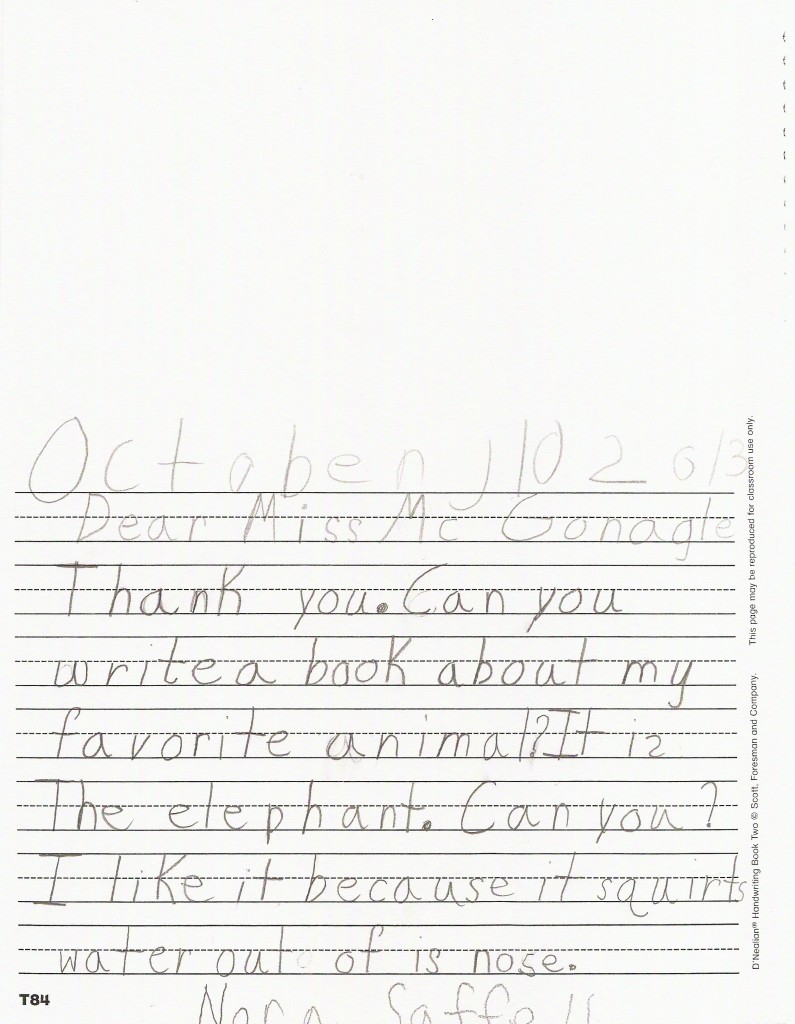 Octoben 10 2013
Dear Miss Mc Gonagle
Thank you. Can you
write a book about my
favorite animal? It is
The elephant. Can you?
I like it because it squirts
water out of is nose.
Nora Saffell
T84
D'Nealian® Handwriting Book Two © Scott, Foresman and Company. This page may be reproduced for classroom use only.